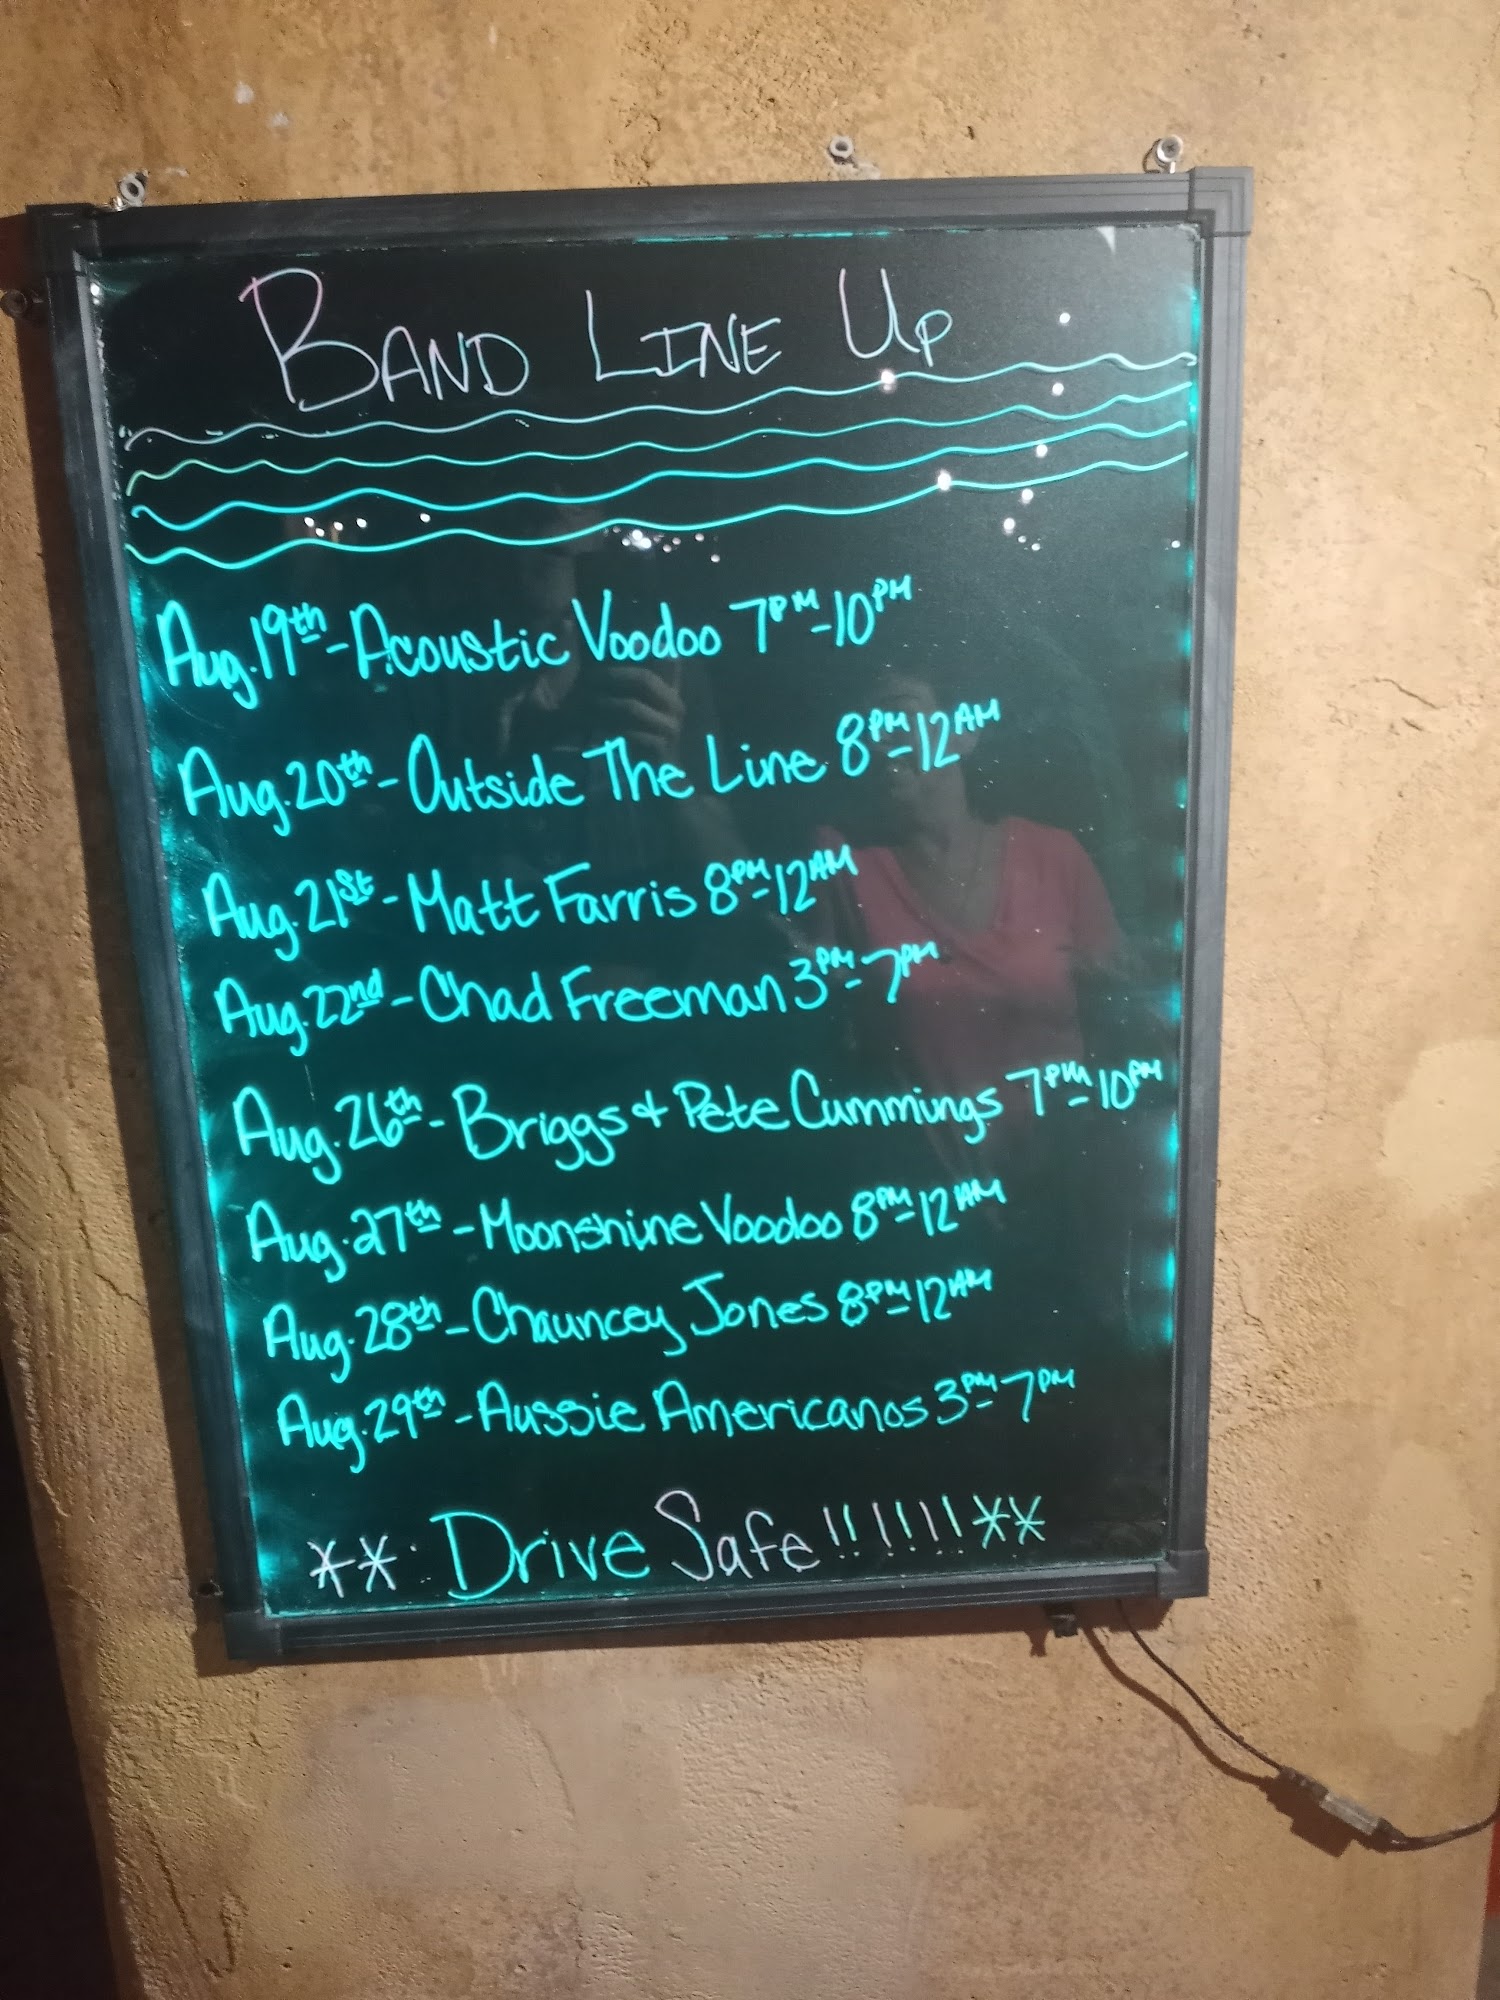 BAND LINE UP
Aug. 19th - Acoustic Voodoo 7PM-10PM
Aug. 20th - Outside The Line 8PM-12AM
Aug. 21st - Matt Farris 8PM-12AM
Aug. 22nd - Chad Freeman 3PM-7PM
Aug. 26th - Briggs + Pete Cummings 7PM-10PM
Aug. 27th - Moonshine Voodoo 8PM-12AM
Aug. 28th - Chauncey Jones 8PM-12AM
Aug. 29th - Aussie Americanos 3PM-7PM
** Drive Safe!!!!!!!**